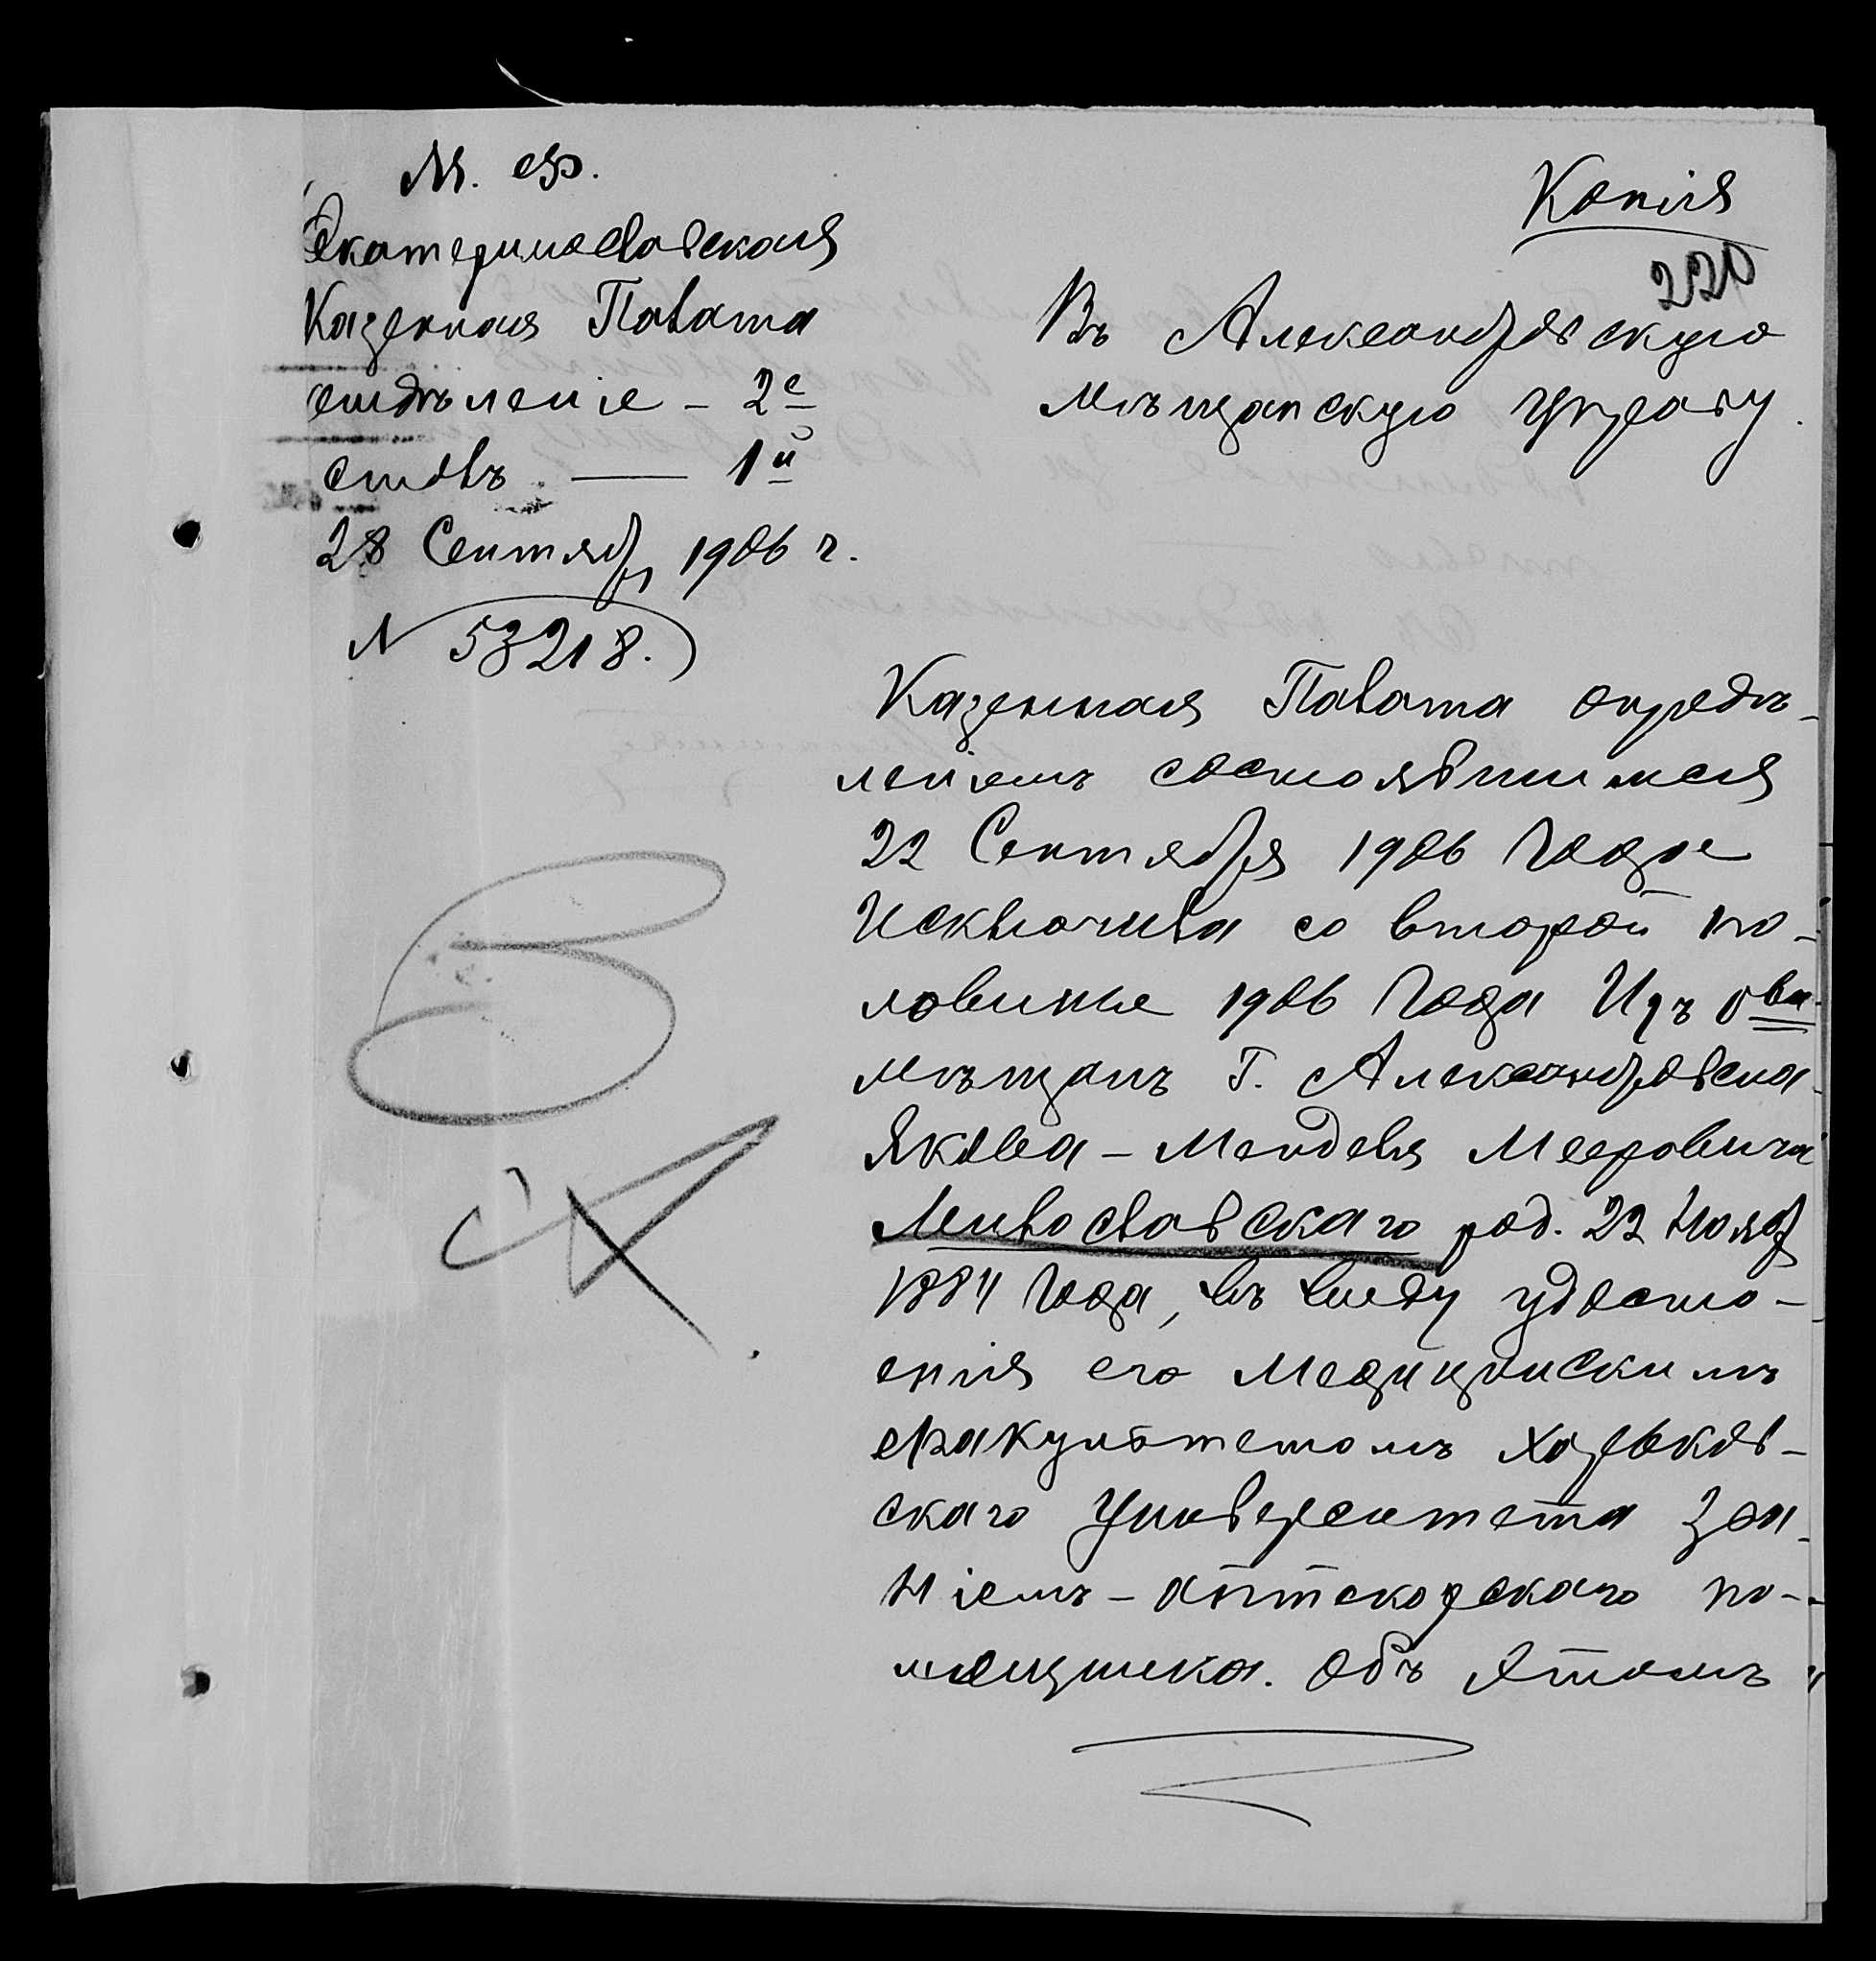 М. Ф.
Екатеринославская
Казенная Палата
отдѣленіе – 2е
столъ — 1й
28 Сентяб. 1906 г.
N 53218.
Копія
220
Въ Александровскую
Мѣщанскую Управу.
Казенная Палата опредѣ-
леніемъ состоявшимся
22 Сентября 1906 года
исключила со второй по-
ловины 1906 года Изъ о-ва
мѣщанъ г. Александровска
Якова – Менделя Мееровича
Милославскаго род. 22 Нояб
1884 года, въ виду удосто-
енія его Медицинскимъ
факультетомъ Харьков-
скаго Университета зва-
ніемъ – аптекарскаго по-
мощника. Объ этомъ